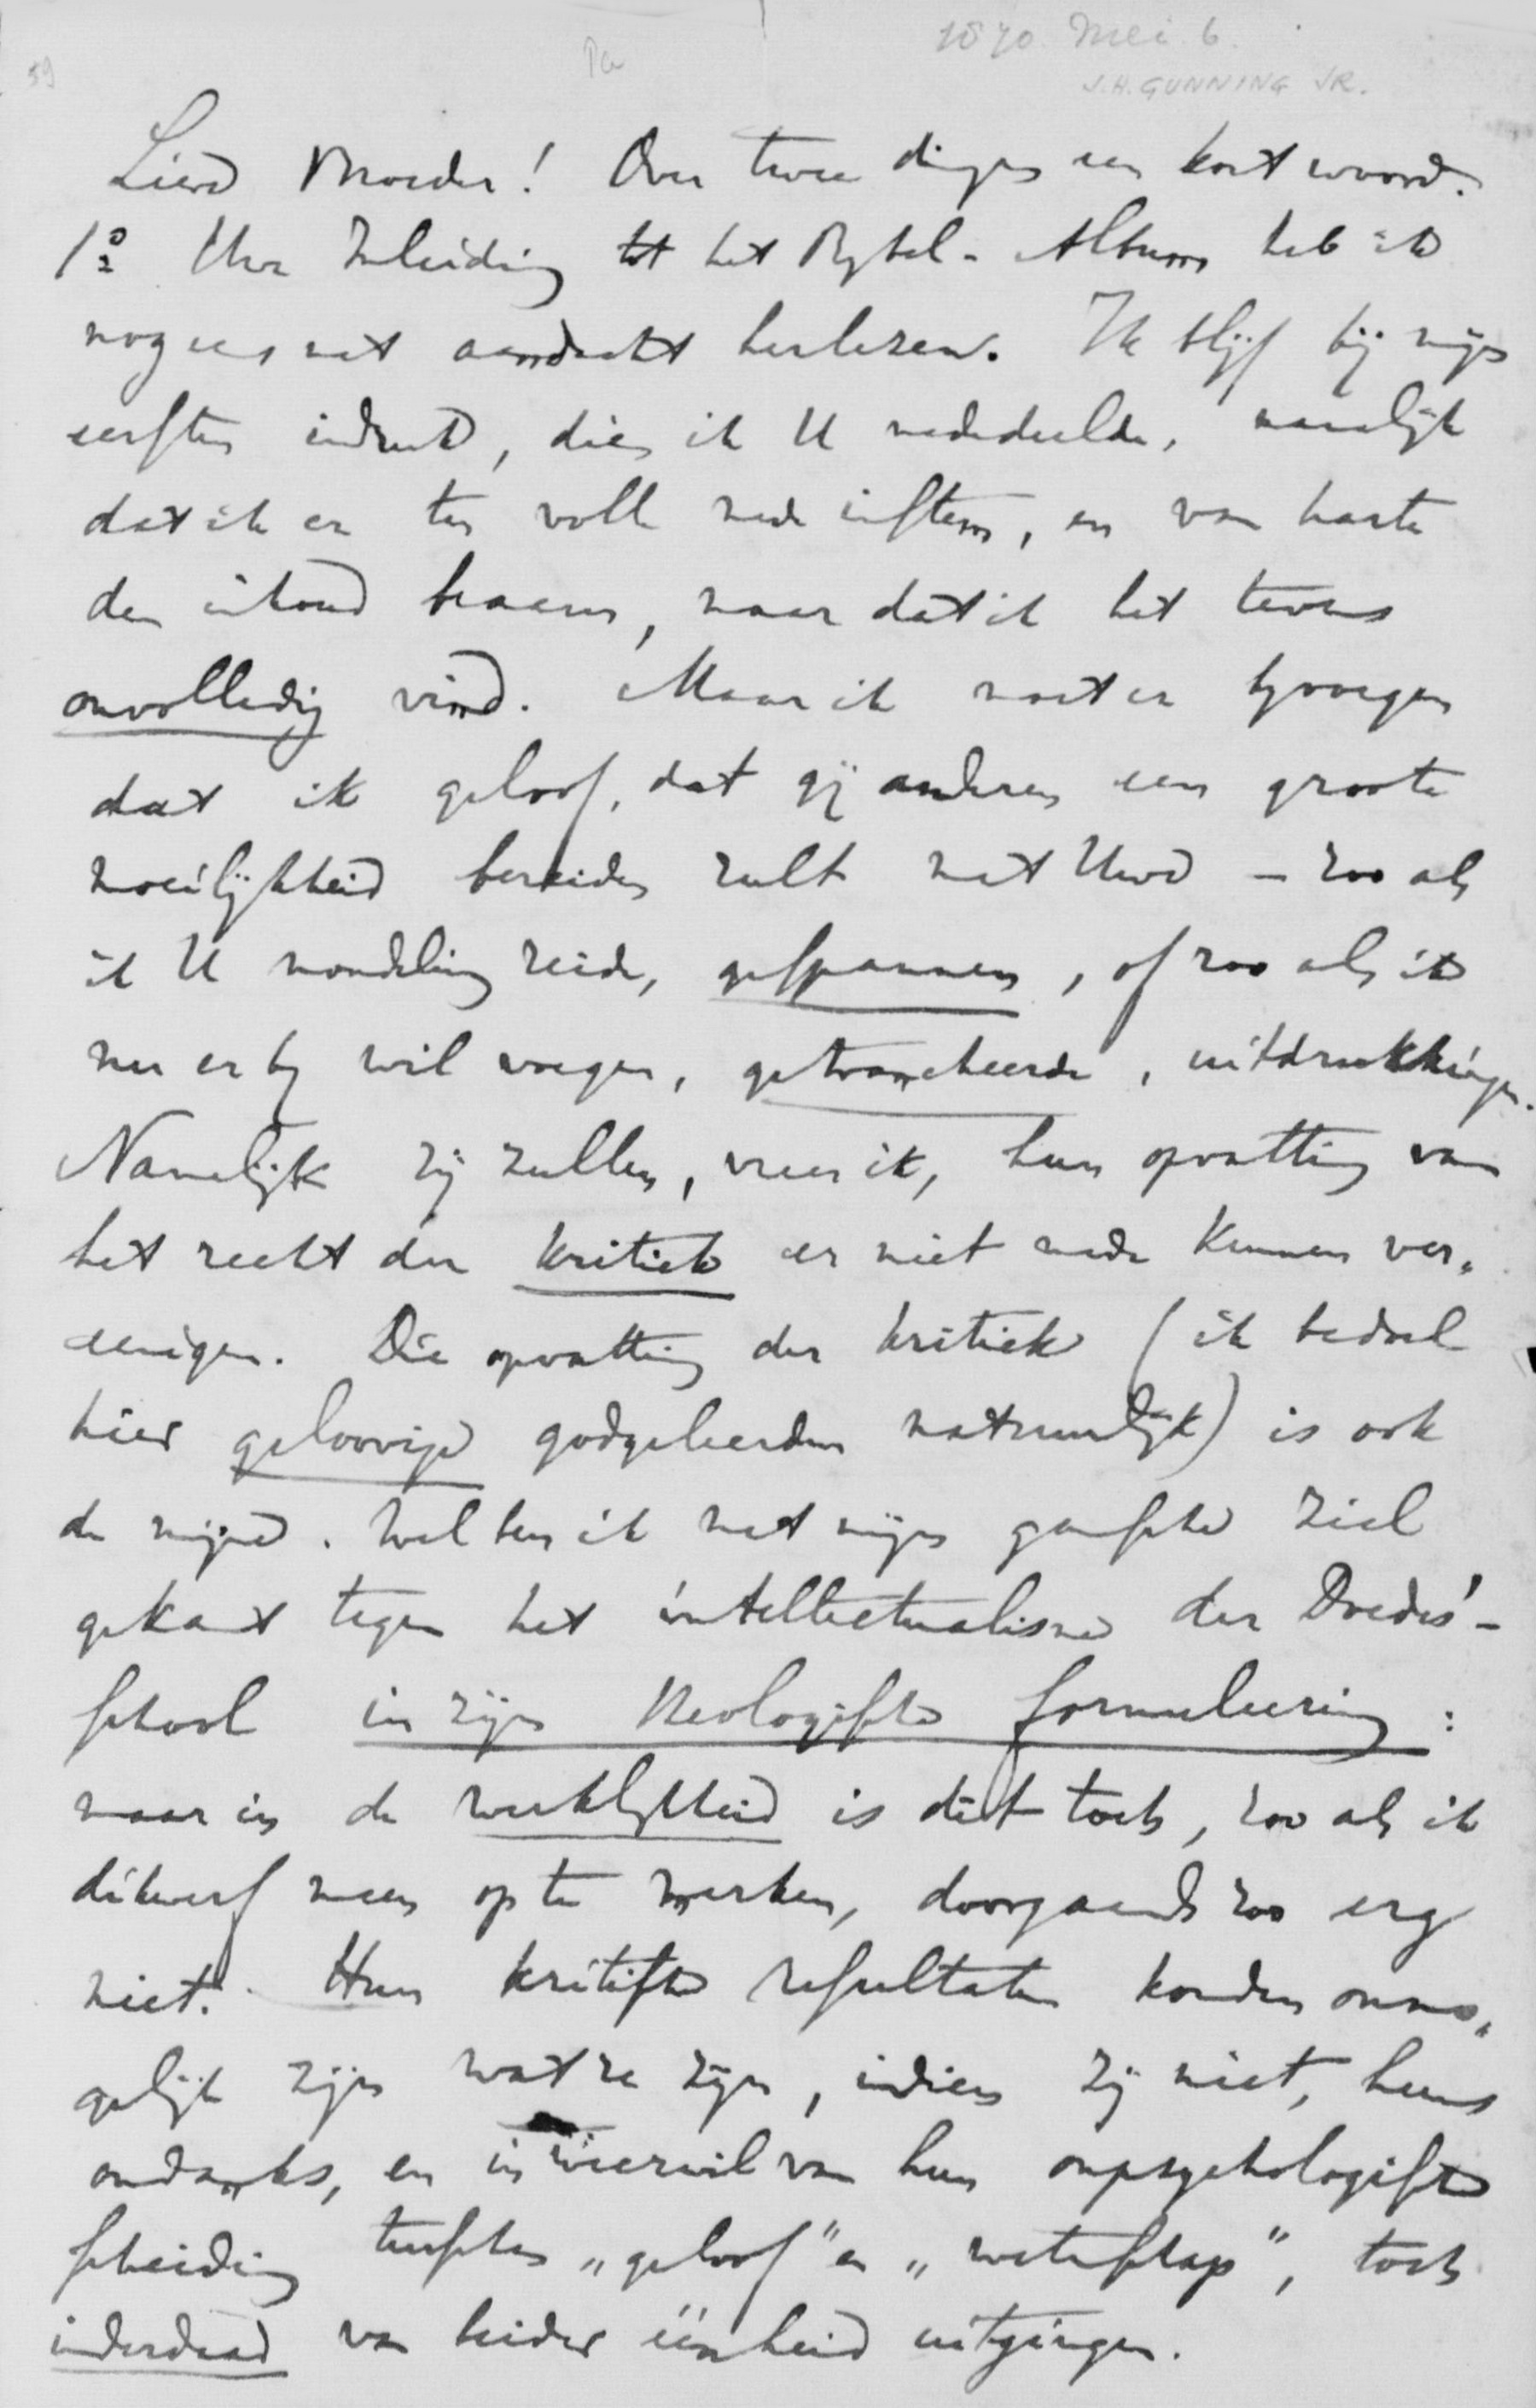 59
Pa
1870 Mei 6.
J.H. GUNNING JR.
Lieve Broeder! Over twee dingen een kort woord.
1º Uwe Inleiding tot het Bybel-Album heb ik
nog eens met aandacht herlezen. Ik blijf bij mijn
eersten indruk, dien ik U mededeelde, namelijk
dat ik er ten volle mede instem, en van harte
den inhoud beaam, maar dat ik het tevens
onvolledig vind. Maar ik moet er byvoegen
dat ik geloof, dat gij anderen een groote
moeilijkheid bereiden zult met Uwe – zoo als
ik U mondeling zeide, gespannen, of zoo als ik
nu er by wil voegen, getrancheerde, uitdrukkingen.
Namelijk zij zullen, vrees ik, hun opvatting van
het recht der kritiek er niet mede kunnen ver„
eenigen. Die opvatting der kritiek (ik bedoel
hier geloovige godgeleerden natuurlijk) is ook
de mijne. Wel ben ik met mijn gansche ziel
gekant tegen het intellectualisme der Doedes'-
school in zijn theologische formuleering:
maar in de werklykheid is dit toch, zoo als ik
dikwerf meen op te merken, doorgaands zoo erg
niet. Hun kritische resultaten konden onmo„
gelijk zijn wat ze zijn, indien zij niet, huns
ondanks, en in weerwil van hun onpsychologische
scheiding tusschen „geloof" en „wetenschap", toch
inderdaad van beider éénheid uitgingen.